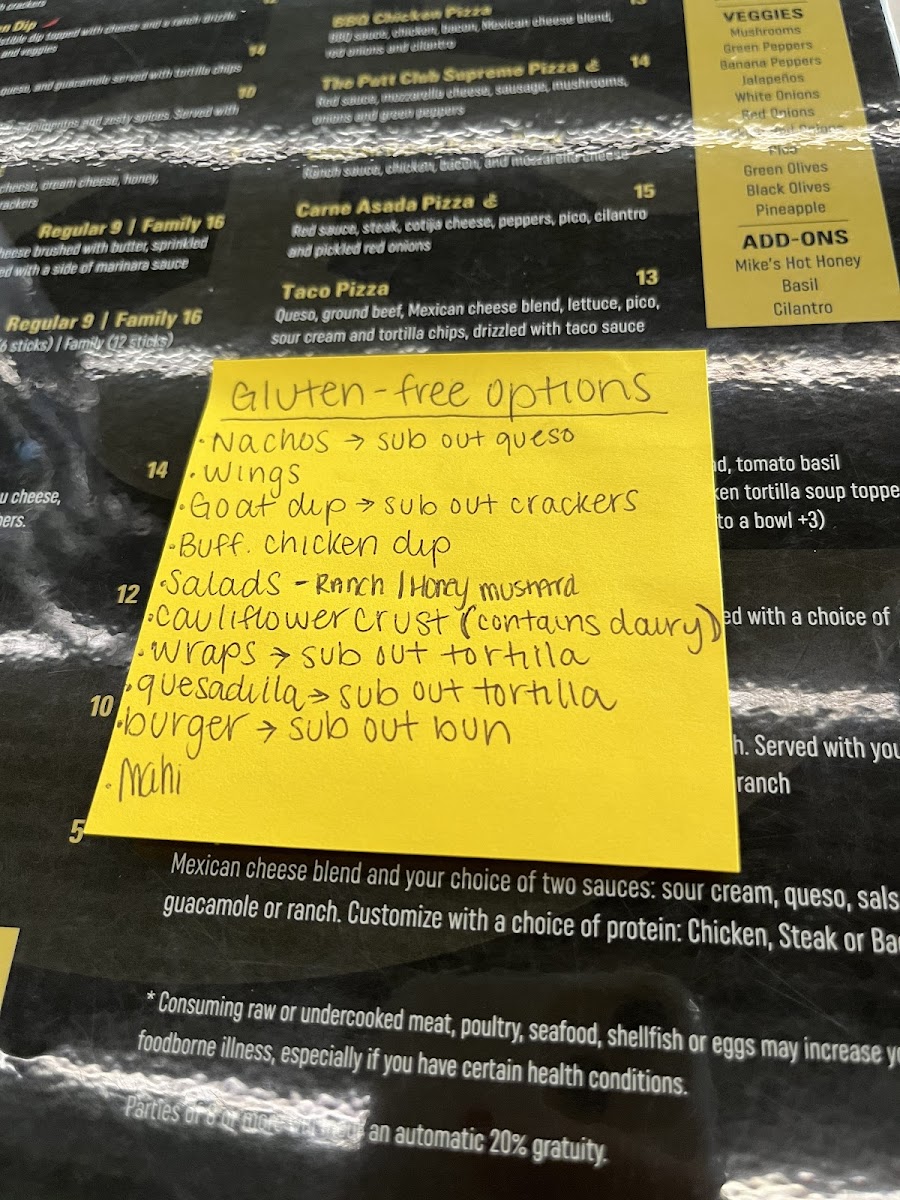 n Dip
stible dip topped with cheese and a ranch drizzle.
and veggies
14
queso, and guacamole served with tortilla chips
10
and zesty spices. Served with
cheese, cream cheese, honey,
rackers
Regular 9 | Family 16
heese brushed with butter, sprinkled
ed with a side of marinara sauce
Regular 9 | Family 16
6 sticks) | Family (12 sticks)
BBQ Chicken Pizza
BBQ sauce, chicken, bacon, Mexican cheese blend,
red onions and cilantro
The Putt Club Supreme Pizza 14
Red sauce, mozzarella cheese, sausage, mushrooms,
onions and green peppers
Ranch sauce, chicken, bacon, and mozzarella cheese
Carne Asada Pizza 15
Red sauce, steak, cotija cheese, peppers, pico, cilantro
and pickled red onions
Taco Pizza 13
Queso, ground beef, Mexican cheese blend, lettuce, pico,
sour cream and tortilla chips, drizzled with taco sauce
VEGGIES
Mushrooms
Green Peppers
Banana Peppers
Jalapeños
White Onions
Red Onions
Pico
Green Olives
Black Olives
Pineapple
ADD-ONS
Mike's Hot Honey
Basil
Cilantro
Gluten-free options
• Nachos → sub out queso
• Wings
• Goat dip → sub out crackers
• Buff. chicken dip
• Salads - Ranch / Honey mustard
• cauliflower crust (contains dairy)
• wraps → sub out tortilla
• quesadilla → sub out tortilla
• burger → sub out bun
• Mahi
14
u cheese,
pers.
12
10
5
d, tomato basil
ken tortilla soup toppe
to a bowl +3)
ed with a choice of
h. Served with you
ranch
Mexican cheese blend and your choice of two sauces: sour cream, queso, sals
guacamole or ranch. Customize with a choice of protein: Chicken, Steak or Ba
* Consuming raw or undercooked meat, poultry, seafood, shellfish or eggs may increase y
foodborne illness, especially if you have certain health conditions.
Parties of 8 or more an automatic 20% gratuity.